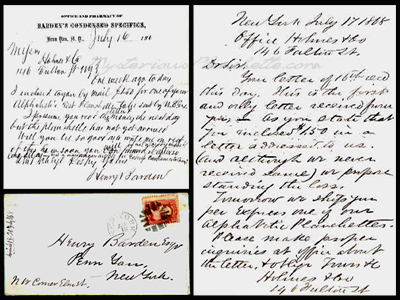 OFFICE AND PHARMACY OF
BARDEN'S CONDENSED SPECIFICS,
Penn Yan, N. Y., July 16 180
Messrs
Holmes & Co
146 Fulton St N.Y.
One week ago to day
I enclosed you by Mail for one of your
Alphabetic to be sent by U.S. Ex.
I presume you rec'd the money the next day
but the planchette has not yet arrived
of this as soon as you
and Oblige Yours
Henry Barden
Henry Barden Esq
Penn Yan,
New York
N W Corner Elm st,
New York July 17 1868
Office Holmes & Co
146 Fulton St
Dr Sir
Your letter of 16th recd
this day. This is the first
and only letter received from
you — as you state that
you inclosed $1.50 in a
letter addressed to us.
(and although we never
received same) we propose
standing the loss.
Tomorrow we ship you
per Express one of our
Alphabetic Planchettes.
Please make proper
inquiries at office about
the letter, & oblige Yours &c
Holmes & Co
146 Fulton St